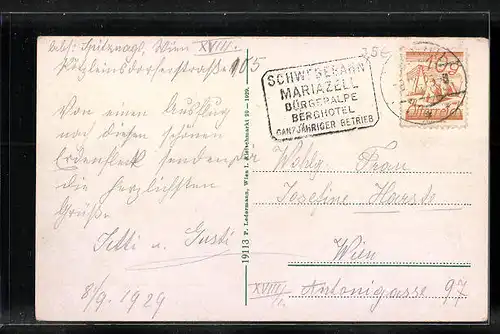 Abs: Spitznagl, Wien XVIII.
Pötzleinsdorferstraße 105
Von einem Ausflug
von diesen schönen
Erdenfleck senden
die herzlichsten
Grüße
Fetti u. Gusti
8/9. 1929
19113 P. Ledermann, Wien I. Fleischmarkt 20 - 1929.
SCHWEBEBAHN
MARIAZELL
BÜRGERALPE
BERGHOTEL
GANZJÄHRIGER BETRIEB
Wohlg. Frau
Josefine
Wien
XVIII/1. Antonigasse 97